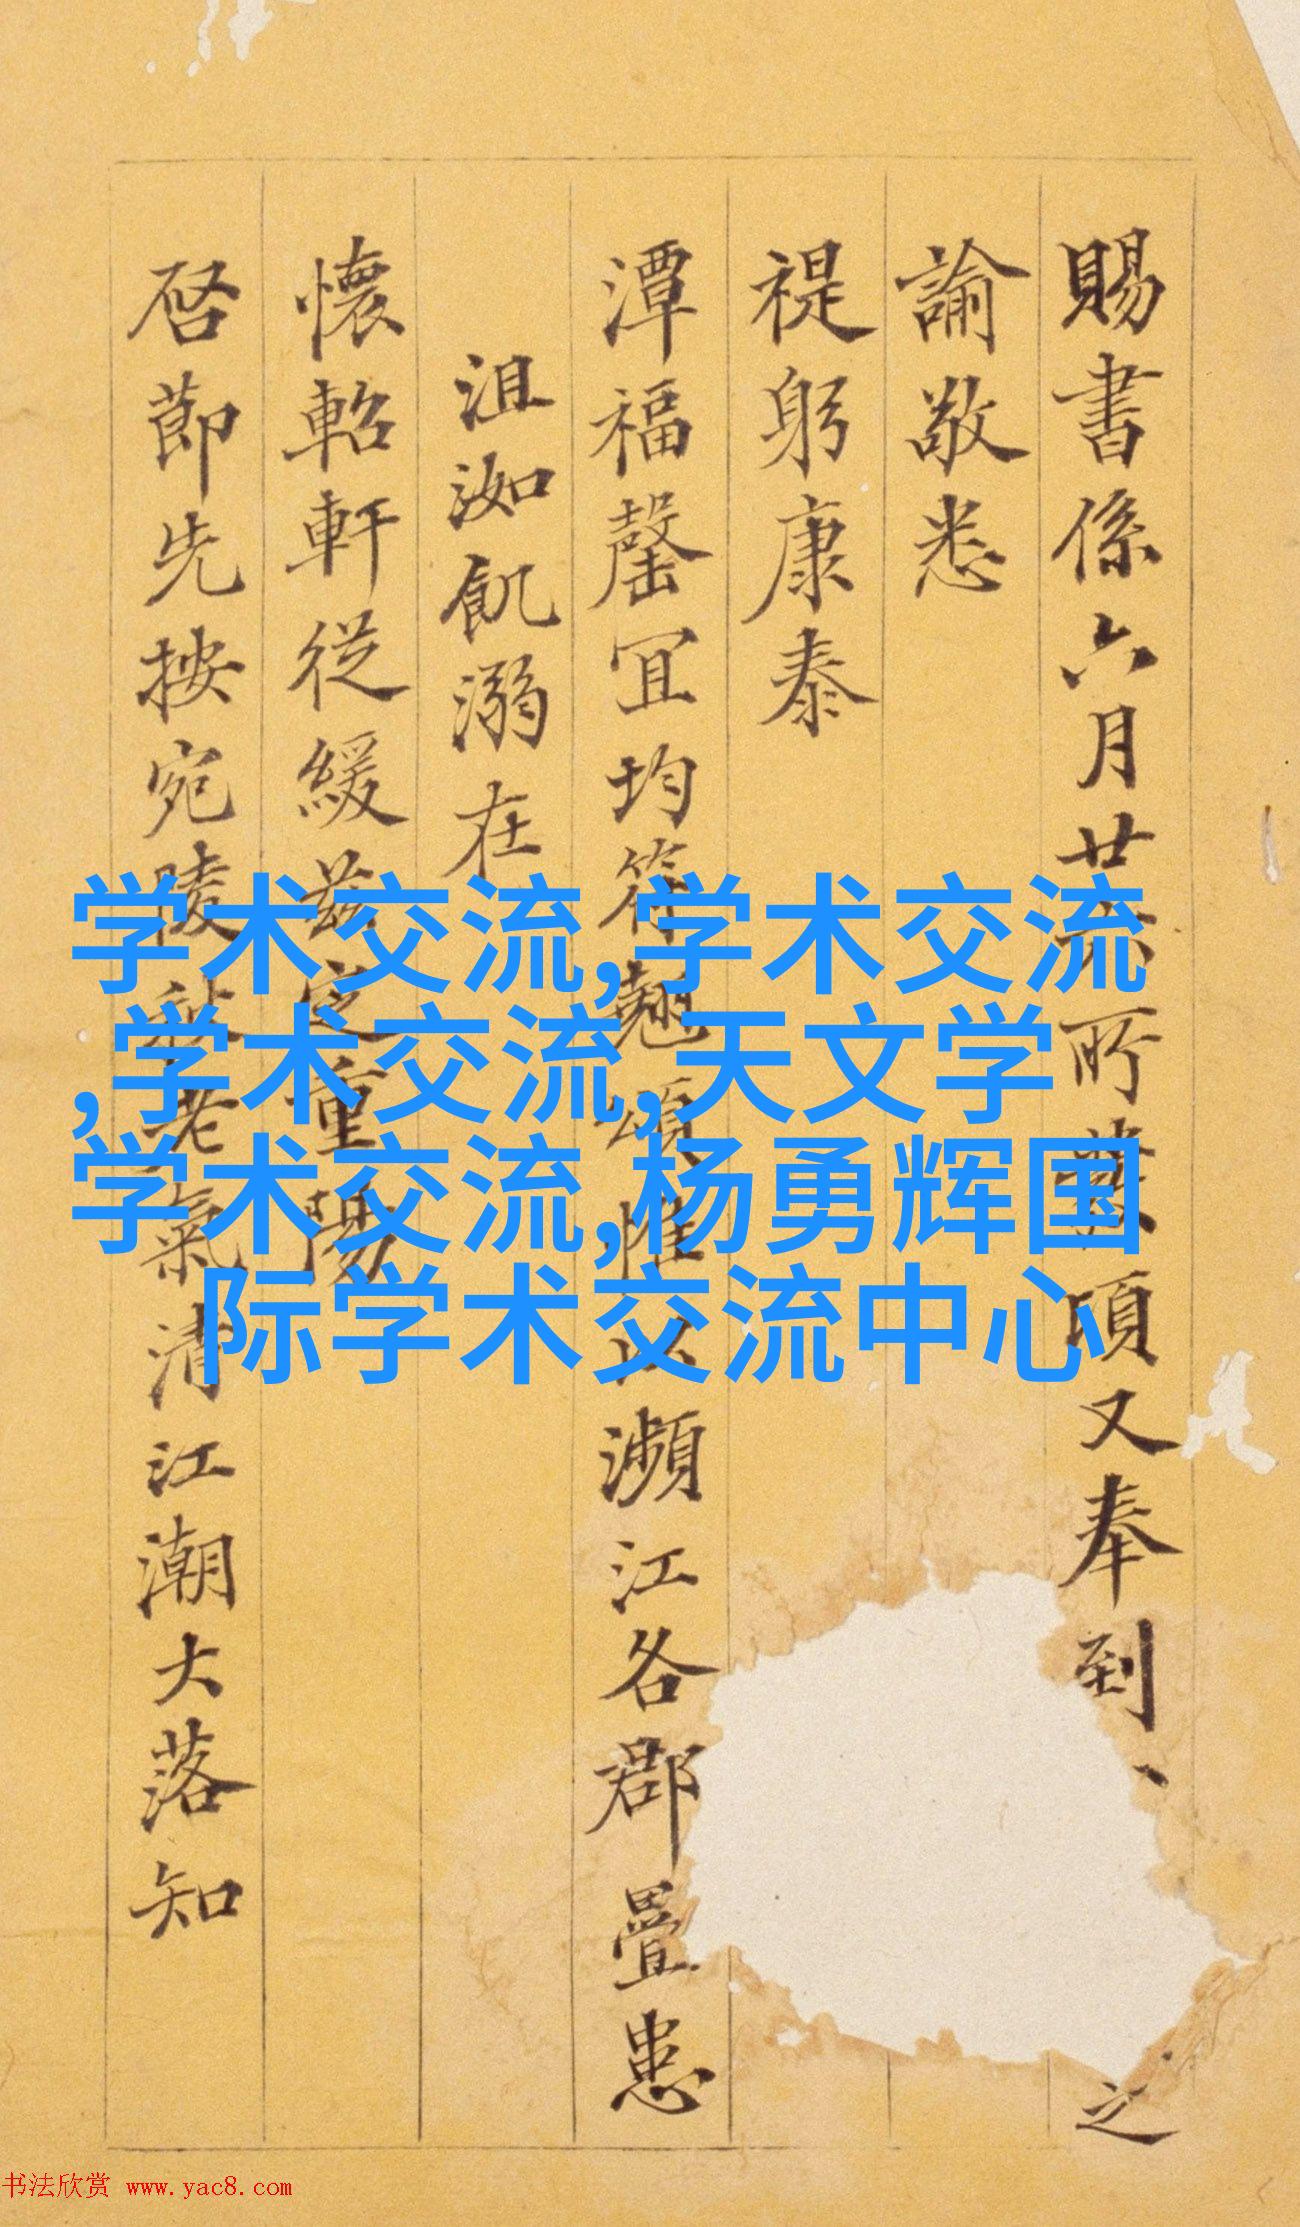 賜書係六月廿
所發項又奉到
之
諭敬悉
禔躬康泰
潭福罄宜均符
頌惟
瀕江各郡疊患
沮洳飢溺在
懷軺軒從緩茲定重陽
啓節先按宛陵秋老氣清江潮大落知
学术交流,学术交流
,学术交流,天文学
学术交流,杨勇辉国
际学术交流中心
书法欣赏 www.yac8.com